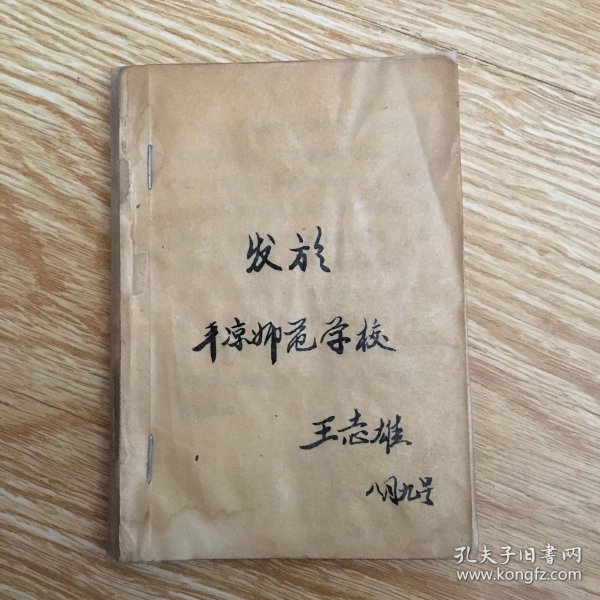 发於
平凉师范学校
王志雄
八月九号
孔夫子旧书网
www.kongfz.com